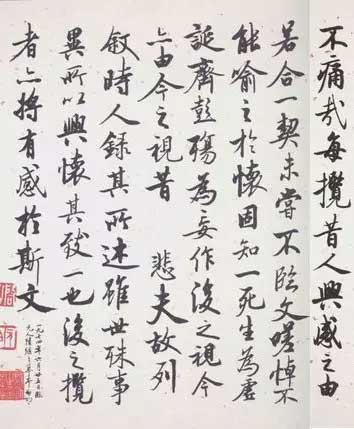 不痛哉每攬昔人興感之由
若合一契未嘗不臨文嗟悼不
能喻之於懷固知一死生為虛
誕齊彭殤為妄作後之視今
亦由今之視昔 悲夫故列
敘時人錄其所述雖世殊事
異所以興懷其致一也後之攬
者亦將有感於斯文
一九七四年六月廿五日臨
元人陸繼之摹本